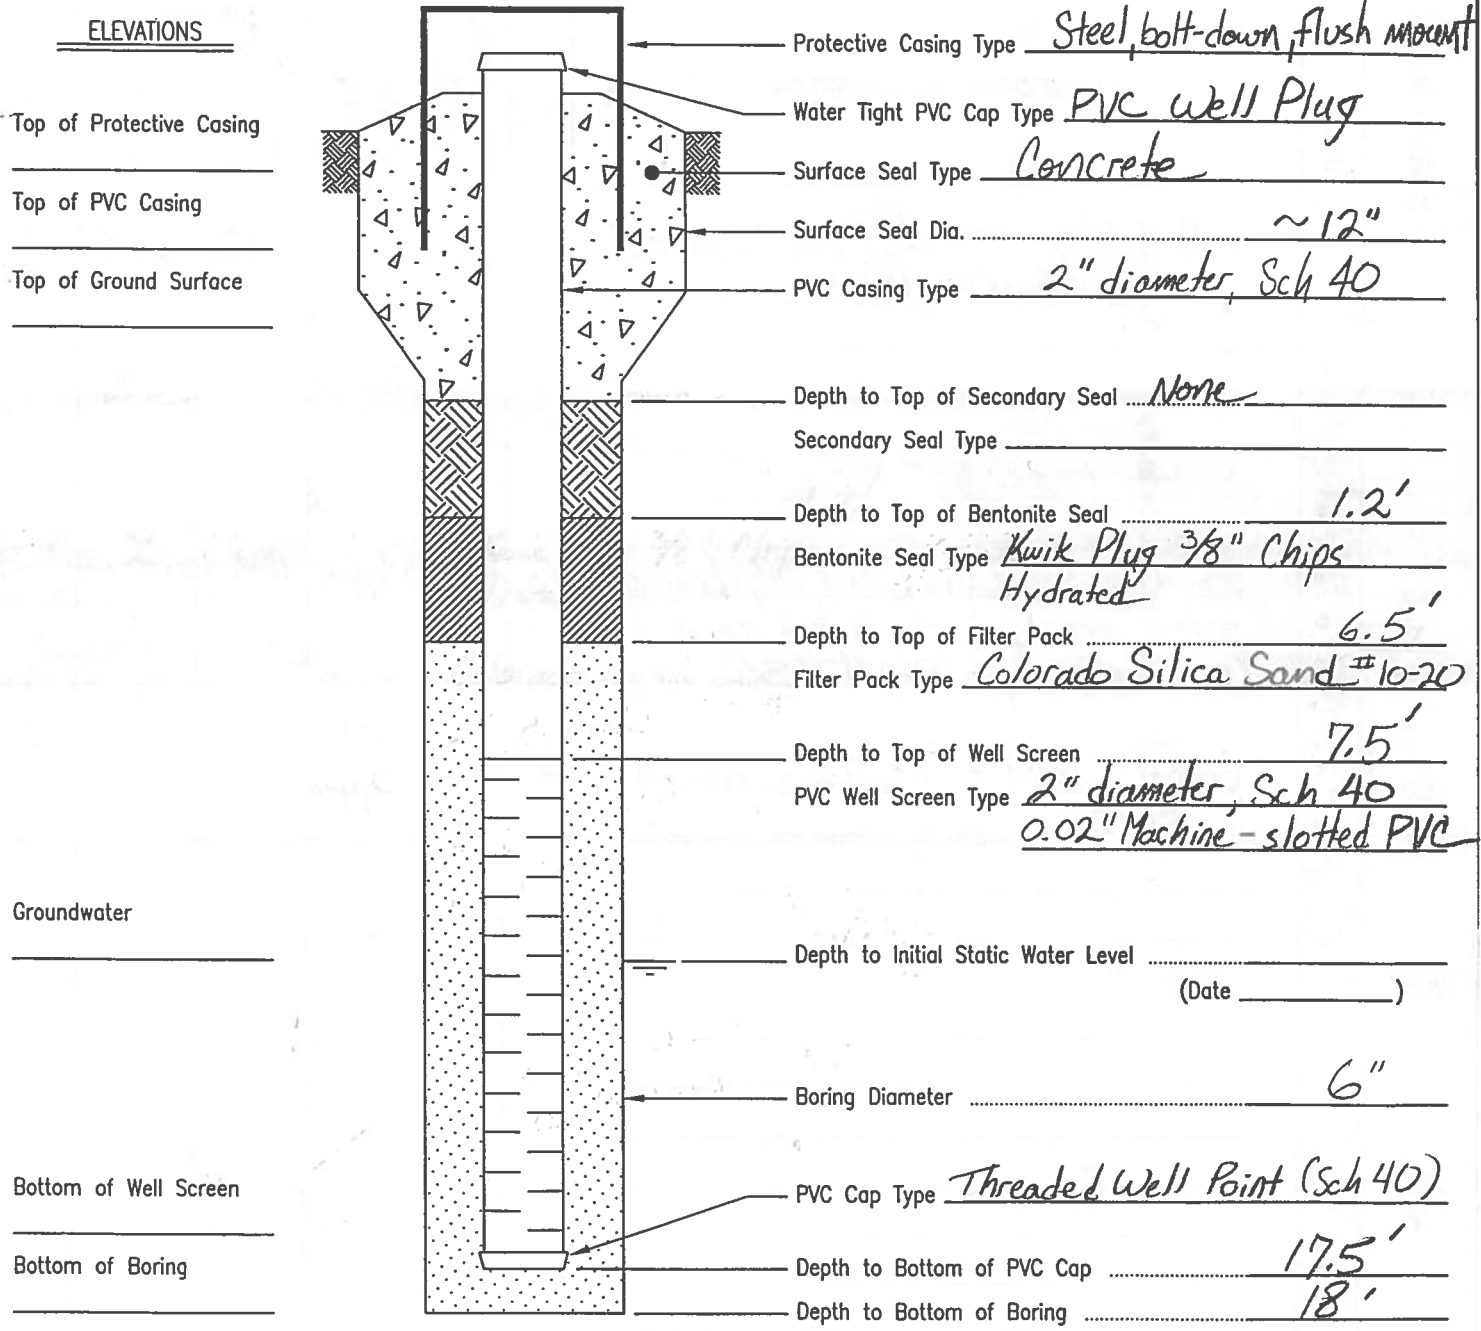 ELEVATIONS
Top of Protective Casing
Top of PVC Casing
Top of Ground Surface
Groundwater
Bottom of Well Screen
Bottom of Boring
Protective Casing Type Steel, bolt-down, flush mount
Water Tight PVC Cap Type PVC Well Plug
Surface Seal Type Concrete
Surface Seal Dia. ~12"
PVC Casing Type 2" diameter, Sch 40
Depth to Top of Secondary Seal None
Secondary Seal Type
Depth to Top of Bentonite Seal 1.2'
Bentonite Seal Type Kwik Plug 3/8" Chips
Hydrated
Depth to Top of Filter Pack 6.5'
Filter Pack Type Colorado Silica Sand #10-20
Depth to Top of Well Screen 7.5'
PVC Well Screen Type 2" diameter, Sch 40
0.02" Machine-slotted PVC
Depth to Initial Static Water Level
(Date )
Boring Diameter 6"
PVC Cap Type Threaded Well Point (Sch 40)
Depth to Bottom of PVC Cap 17.5'
Depth to Bottom of Boring 18'